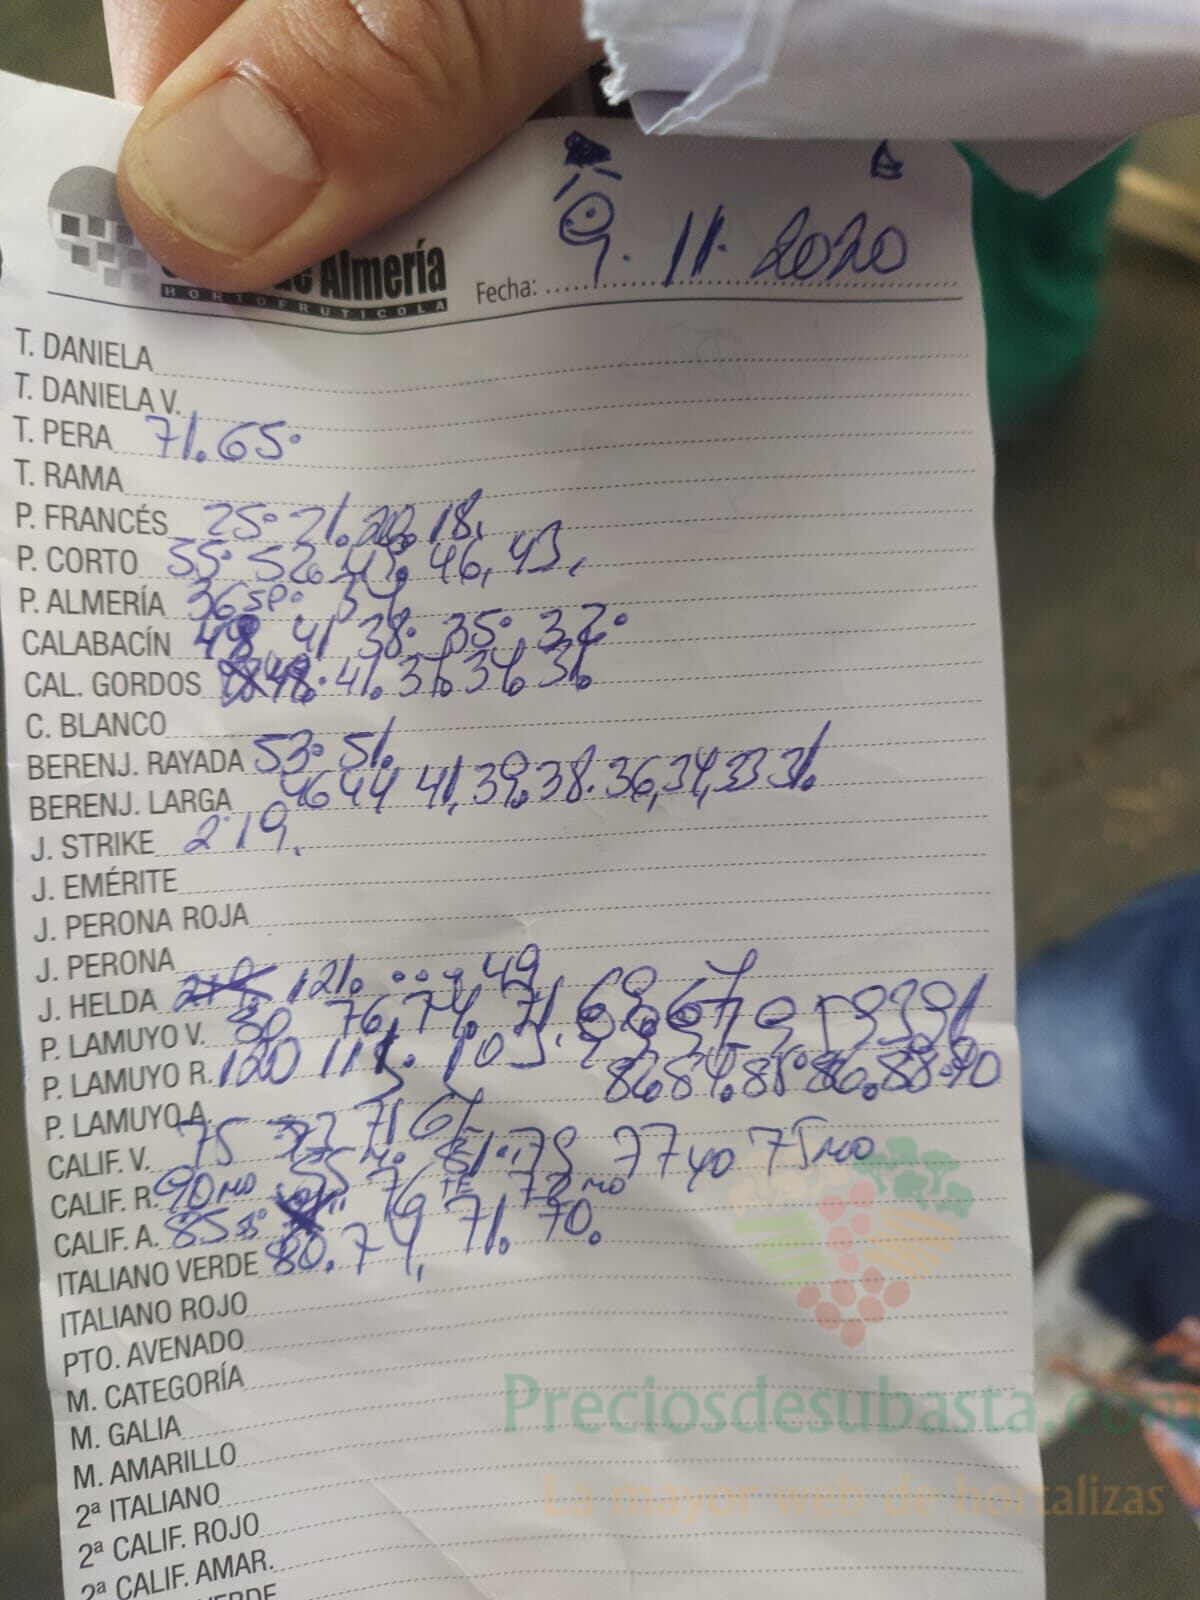 de Almería
HORTOFRUTICOLA
Fecha: 9. 11. 2020
T. DANIELA
T. DANIELA V.
T. PERA 71. 65.
T. RAMA
P. FRANCÉS 25. 21. 20. 18.
P. CORTO 55. 52. 47. 46, 43,
P. ALMERÍA 36 SP. 34
CALABACÍN 48 41 38. 35. 32.
CAL. GORDOS 48. 41. 36. 34. 31.
C. BLANCO
BERENJ. RAYADA 53. 51.
BERENJ. LARGA 46 44 41, 39. 38. 36, 34, 33 31.
J. STRIKE 2'19.
J. EMÉRITE
J. PERONA ROJA
J. PERONA
J. HELDA 121. 49
P. LAMUYO V. 80 76, 74. 71. 68. 67
P. LAMUYO R. 120 115. 105. 93 91
86. 84. 85. 86. 88. 90
P. LAMUYO A.
CALIF. V. 75 73 71 67
CALIF. R. 90 MO 85 81. 79 77 75 MO
CALIF. A. 85 76 TE 72 MO
ITALIANO VERDE 80. 74, 71. 70.
ITALIANO ROJO
PTO. AVENADO
M. CATEGORÍA
M. GALIA
M. AMARILLO
2ª ITALIANO
2ª CALIF. ROJO
2ª CALIF. AMAR.
Preciosdesubasta.com
La mayor web de hortalizas